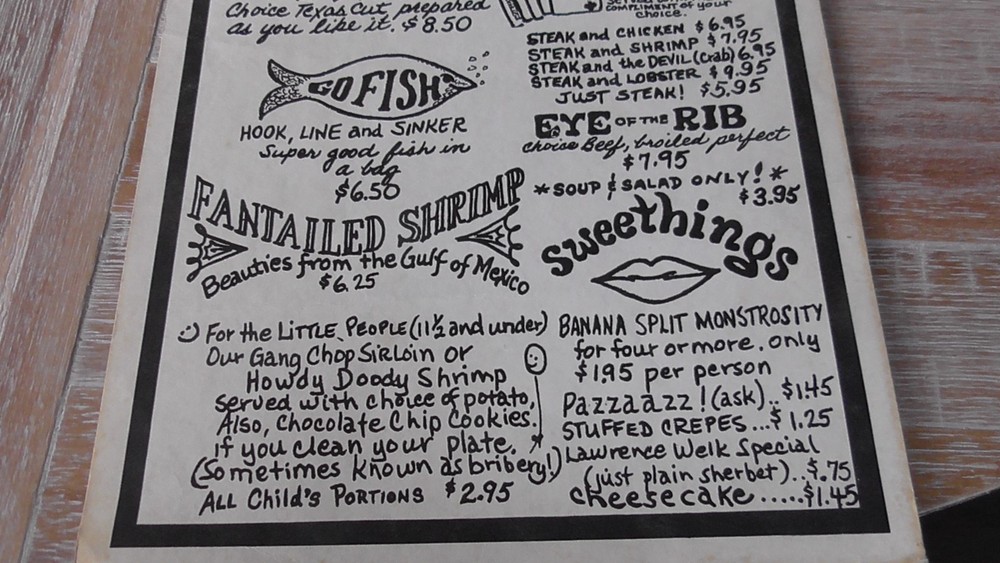 Choice Texas Cut, prepared
as you like it. $8.50
GO FISH
HOOK, LINE and SINKER
Super good fish in
a bag
$6.50
FANTAILED SHRIMP
Beauties from the Gulf of Mexico
$6.25
For the LITTLE PEOPLE (11½ and under)
Our Gang Chop Sirloin or
Howdy Doody Shrimp
served with choice of potato,
Also, Chocolate Chip Cookies.
if you clean your plate.
(Sometimes known as bribery!)
ALL Child's PORTIONS $2.95
COMPLIMENT of your
choice.
STEAK and CHICKEN $6.95
STEAK and SHRIMP $7.95
STEAK and the DEVIL (crab) 6.95
STEAK and LOBSTER $9.95
JUST STEAK! $5.95
EYE OF THE RIB
choice Beef, broiled perfect
$7.95
*SOUP & SALAD ONLY!*
$3.95
sweethings
BANANA SPLIT MONSTROSITY
for four or more. only
$1.95 per person
Pazzaazz! (ask)..$1.45
STUFFED CREPES...$1.25
Lawrence Welk Special
(just plain sherbet)..$.75
cheesecake.....$1.45